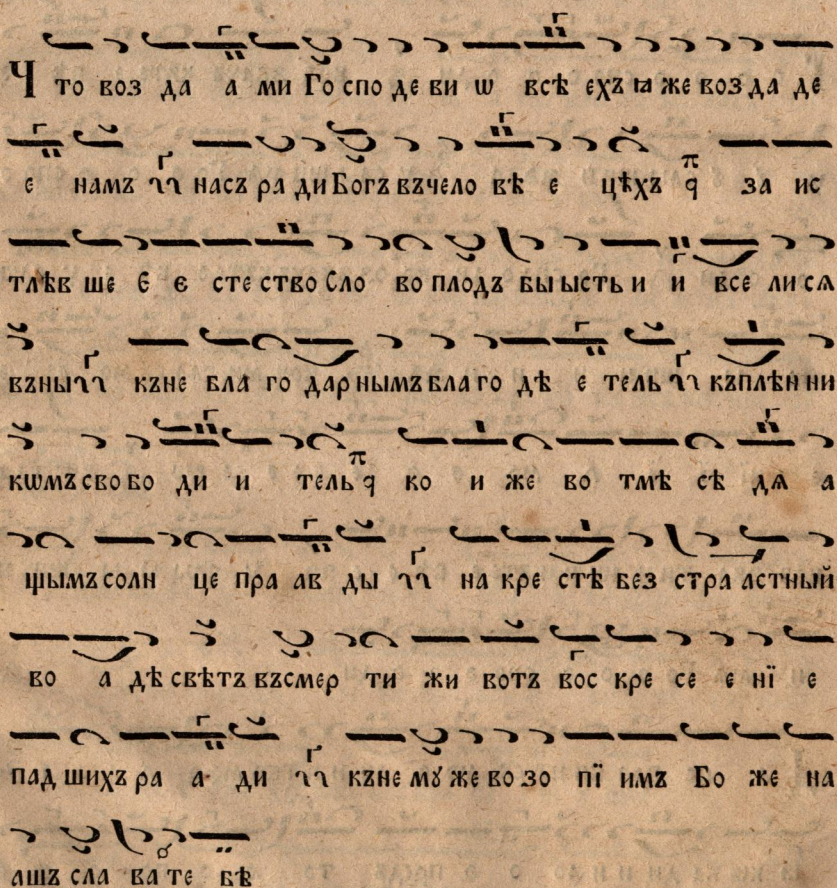 Что воз да а ми Го спо де ви ѡ всѣ ехъ ꙗ же воз да де
е намъ насъ ра ди Богъ въ чело вѣ е цѣхъ за ис
тлѣв ше Є є сте ство Сло во плодъ бы ысть и и все ли сѧ
въ ны къ не бла го дар нымъ бла го дѣ е тель къ плѣн ни
кѡмъ сво бо ди и тель ко и же во тмѣ сѣ дѧ а
щымъ солн це пра ав ды на кре стѣ без стра астный
во а дѣ свѣтъ въ смер ти жи вотъ вос кре се е нї е
пад шихъ ра а ди къ не мꙋ же во зо пї имъ Бо же на
ашъ сла ва те бѣ